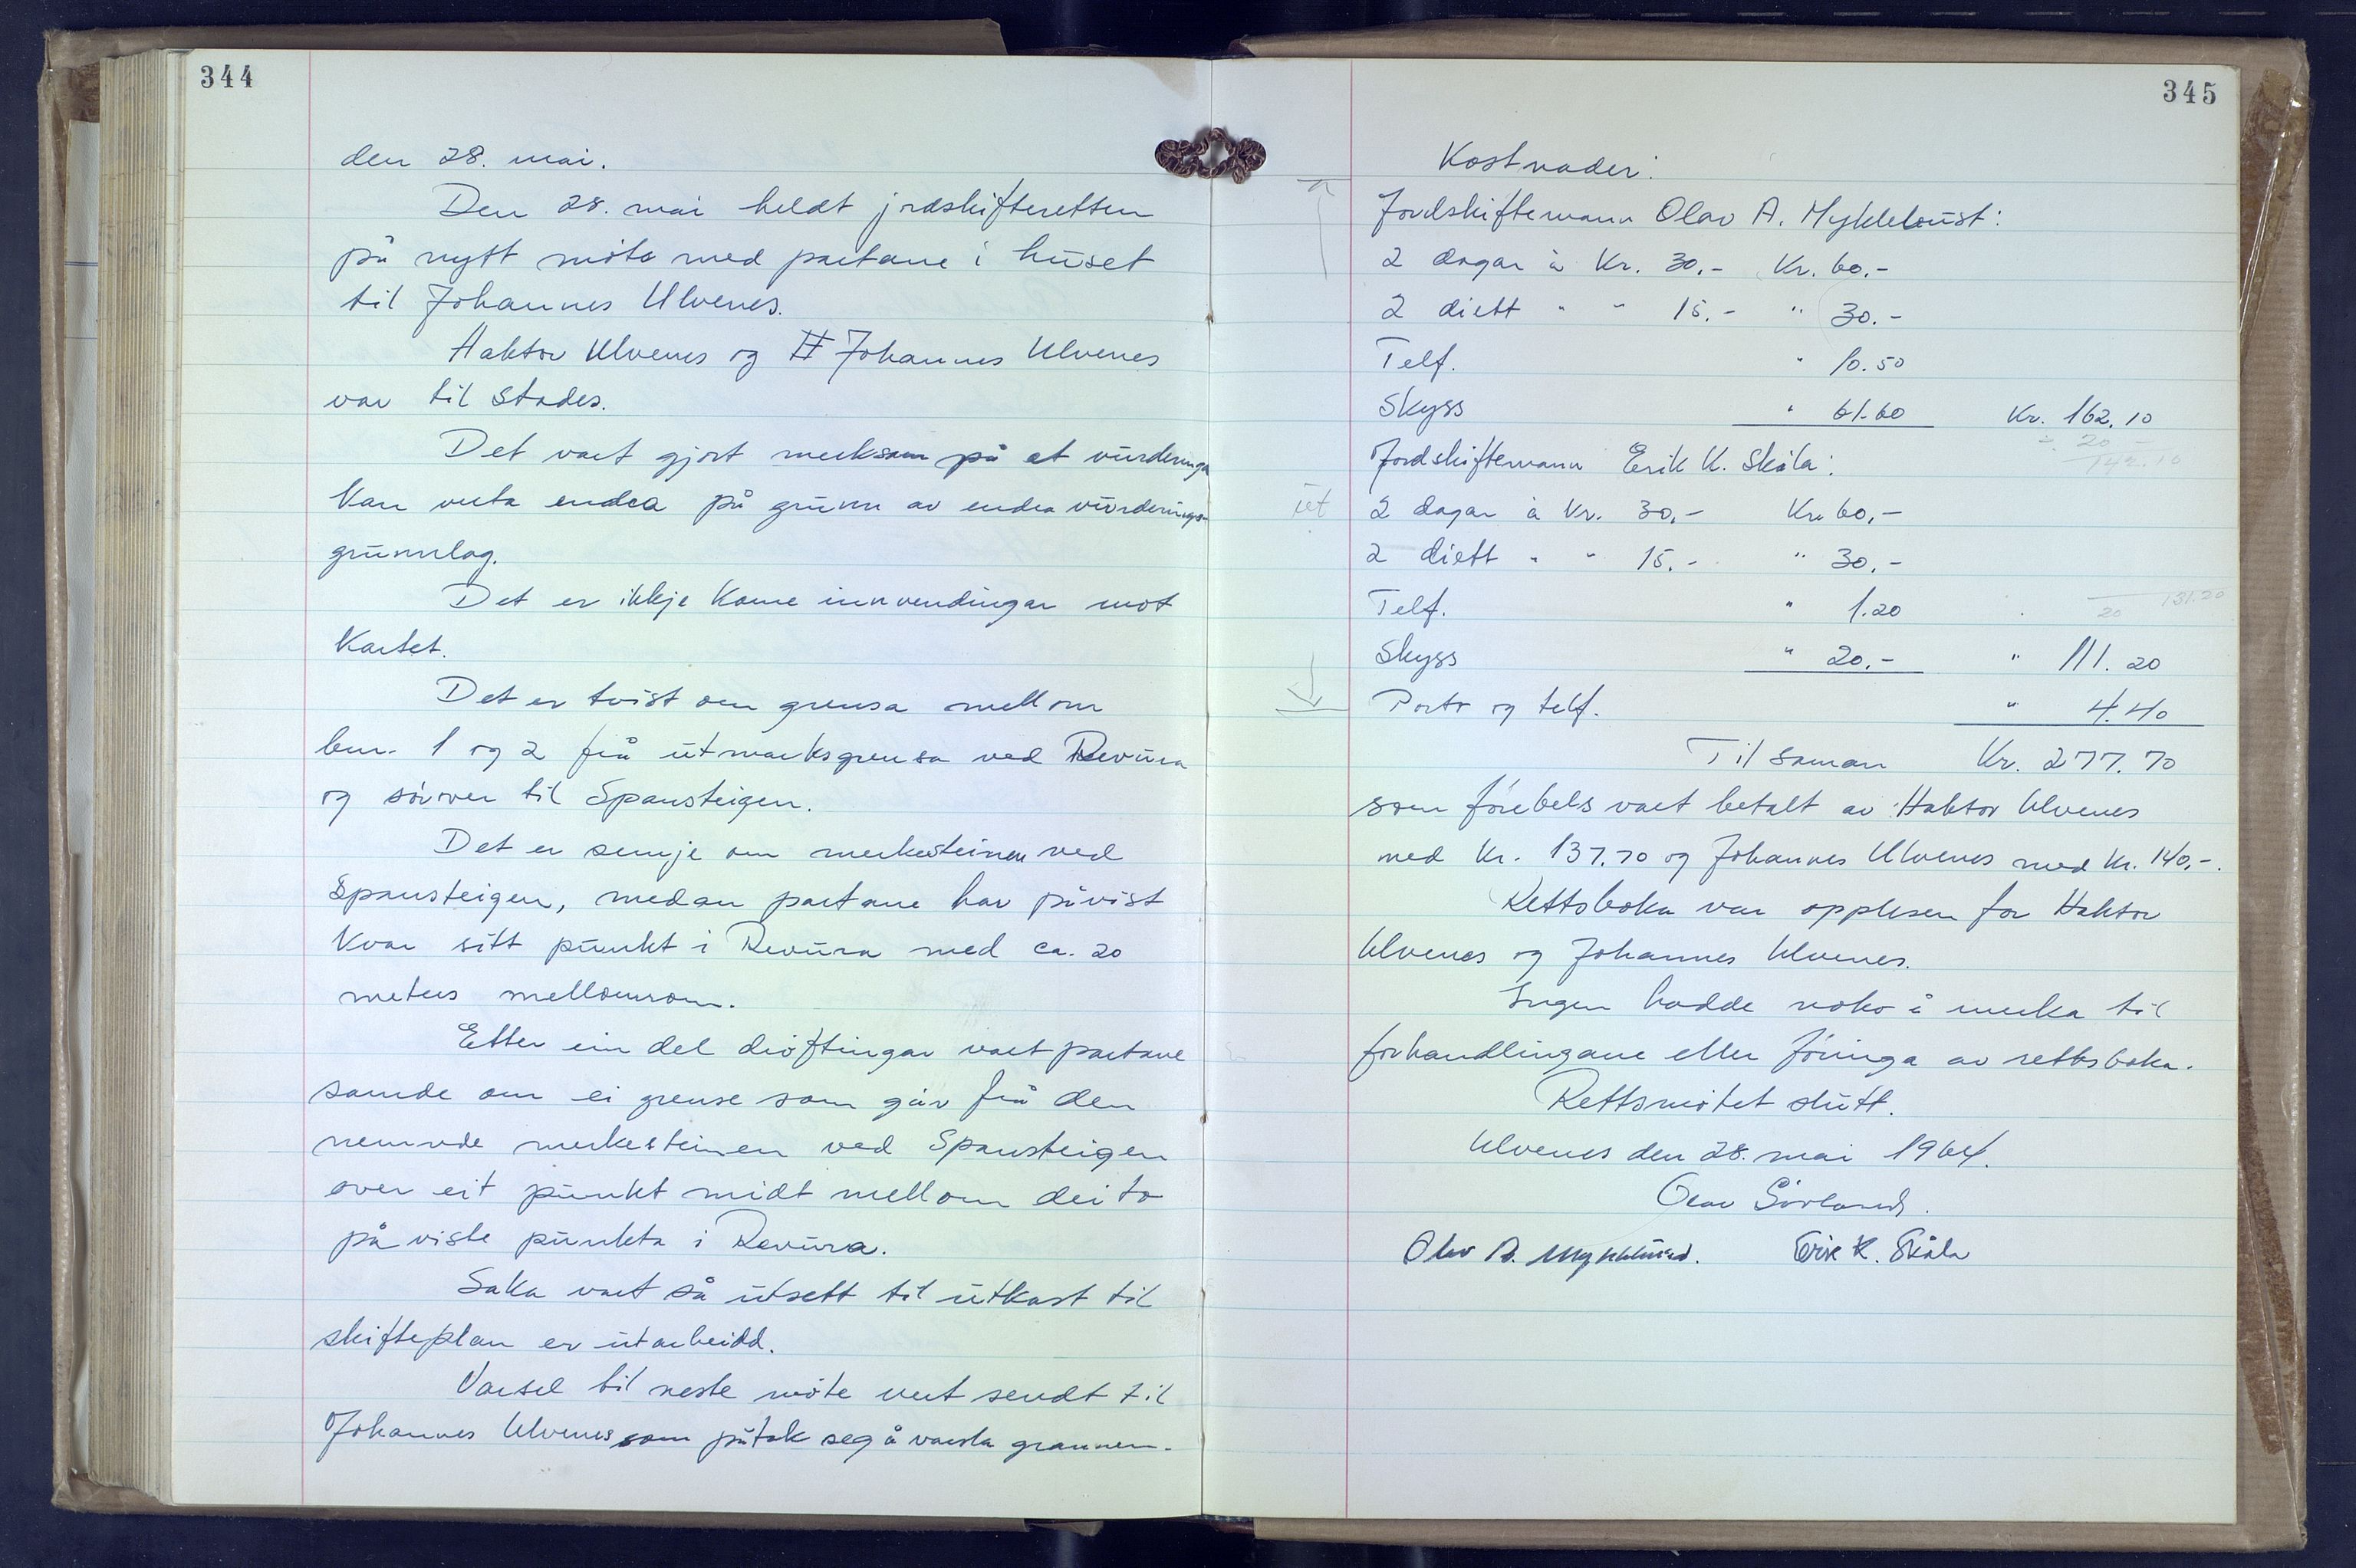 344
den 28. mai.
Den 28. mai heldt jordskifteretten
på nytt møte med partane i huset
til Johannes Ulvenes.
Haktor Ulvenes og Johannes Ulvenes
var til stades.
Det vart gjort merksam på at vurderinga
kan verta endra på grunn av endra vurderings-
grunnlag.
Det er ikkje kome innvendingar mot
kartet.
Det er tvist om grensa mellom
bnr. 1 og 2 frå utmarksgrensa ved Revura
og sørover til Spansteigen.
Det er semje om merkesteinen ved
Spansteigen, medan partane har påvist
kvar sitt punkt i Revura med ca. 20
meters mellomrom.
Etter ein del drøftingar vart partane
samde om ei grense som går frå den
nemnde merkesteinen ved Spansteigen
over eit punkt midt mellom dei to
påviste punkta i Revura.
Saka vart så utsett til utkast til
skifteplan er utarbeidd.
Varsel til neste møte vert sendt til
Johannes Ulvenes som påtok seg å varsla grannen.
345
Kostnader:
Jordskiftemann Olav A. Myklebust:
2 dagar à Kr. 30,- Kr. 60,-
2 diett " " 15.- " 30.-
Telf. " 10.50
Skyss " 61.60 Kr. 162.10
÷ 20 -
142.10
Jordskiftemann Erik K. Skåla:
ut 2 dagar à Kr. 30,- Kr. 60,-
2 diett " " 15.- " 30,-
Telf. " 1.20 20 131.20
Skyss " 20,- " 111.20
Porto og telf. " 4.40
Til saman Kr. 277.70
som førebels vart betalt av Haktor Ulvenes
med Kr. 137.70 og Johannes Ulvenes med kr. 140,-.
Rettsboka var opplesen for Haktor
Ulvenes og Johannes Ulvenes.
Ingen hadde noko å merka til
forhandlingane eller føringa av rettsboka.
Rettsmøtet slutt.
Ulvenes den 28. mai 1964.
Olav Sørland.
Olav A. Myklebust. Erik K. Skåla